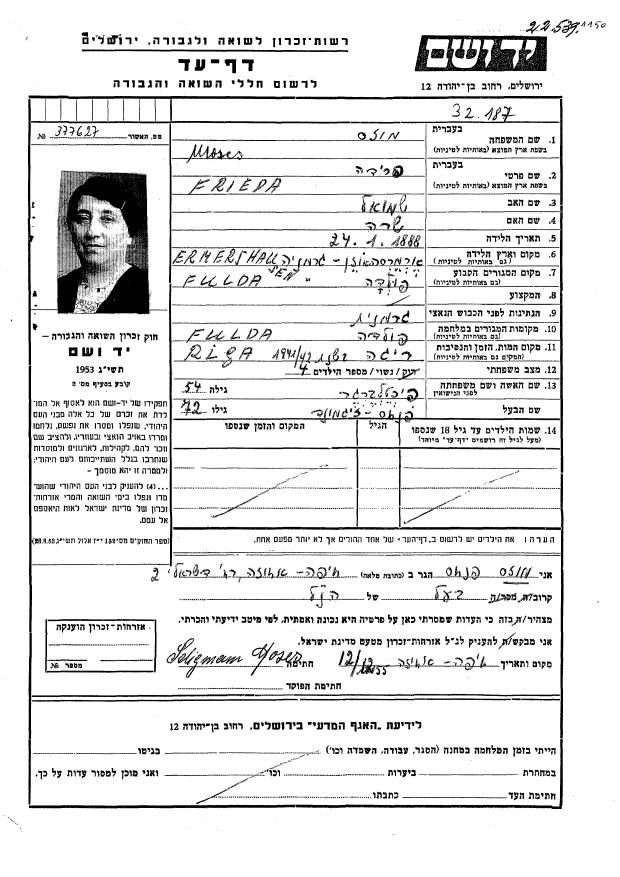 22.539. 1150
יד ושם
ירושלים, רחוב בן־יהודה 12
רשות־זכרון לשואה ולגבורה, ירושלים
דף־עד
לרשום חללי השואה והגבורה
32.187
מס. האשור № 377627
בעברית מוזס
1. שם המשפחה
בשפת ארץ המוצא (באותיות לטיניות) Moses
בעברית פרידה
2. שם פרטי
(באותיות לטיניות) FRIEDA
3. שם האב שמואל
4. שם האם שרה
5. תאריך הלידה 24.1.1888
6. מקום וארץ הלידה (גם באותיות לטיניות) גרמניה
7. מקום המגורים הקבוע (גם באותיות לטיניות) פולדה FULDA
8. המקצוע
9. הנתינות לפני הכבוש הנאצי גרמנית
10. מקומות המגורים במלחמה (גם באותיות לטיניות) פולדה FULDA
11. מקום המות, הזמן והנסיבות (המקום גם באותיות לטיניות) ריגה בשנת 1941/42 RIGA
12. מצב משפחתי רוק/ נשוי/ מספר הילדים 4
13. שם האשה ושם משפחתה לפני הנישואין גילה 54
שם הבעל פנחס - זיגמונד גילו 72
14. שמות הילדים עד גיל 18 שנספו
(מעל לגיל זה רושמים "דף־עד" מיוחד)
הגיל
המקום והזמן שנספו
הערה: את הילדים יש לרשום ב"דף־העד" של אחד ההורים אך לא יותר מפעם אחת.
חוק זכרון השואה והגבורה –
יד ושם
תשי״ג 1953
קובע בסעיף מס׳ 2
תפקידו של יד־ושם הוא לאסוף אל המולדת את זכרם של כל אלה מבני העם היהודי, שנפלו ומסרו את נפשם, נלחמו ומרדו באויב הנאצי ובעוזריו, ולהציב שם וזכר להם, לקהילות, לארגונים ולמוסדות שנחרבו בגלל השתייכותם לעם היהודי; ולמטרה זו יהא מוסמך –
...(4) להעניק לבני העם היהודי שהושמדו ונפלו בימי השואה והמרי אזרחות־זכרון של מדינת ישראל לאות היאספם אל עמם.
(ספר החוקים מס׳ 132, י״ז אלול תשי״ג, 28.8.53)
אני מוזס פנחס הגר ב (כתובת מלאה) חיפה - אחוזה, רח׳
קרוב/ה, מכר/ה בעל של הנ״ל
מצהיר/ה בזה כי העדות שמסרתי כאן על פרטיה היא נכונה ואמתית, לפי מיטב ידיעתי והכרתי.
אני מבקש/ת להעניק לנ״ל אזרחות־זכרון מטעם מדינת ישראל.
מקום ותאריך חיפה - אחוזה 12/12 55 חתימה Seligmann Moses
חתימת הפוקד
אזרחות־זכרון הוענקה
מספר №
לידיעת "האגף המדעי" בירושלים, רחוב בן־יהודה 12
הייתי בזמן המלחמה במחנה (הסגר, עבודה, השמדה וכו׳) בגיטו
במחתרת ביערות וכו׳ ואני מוכן למסור עדות על כך.
חתימת העד כתבתו